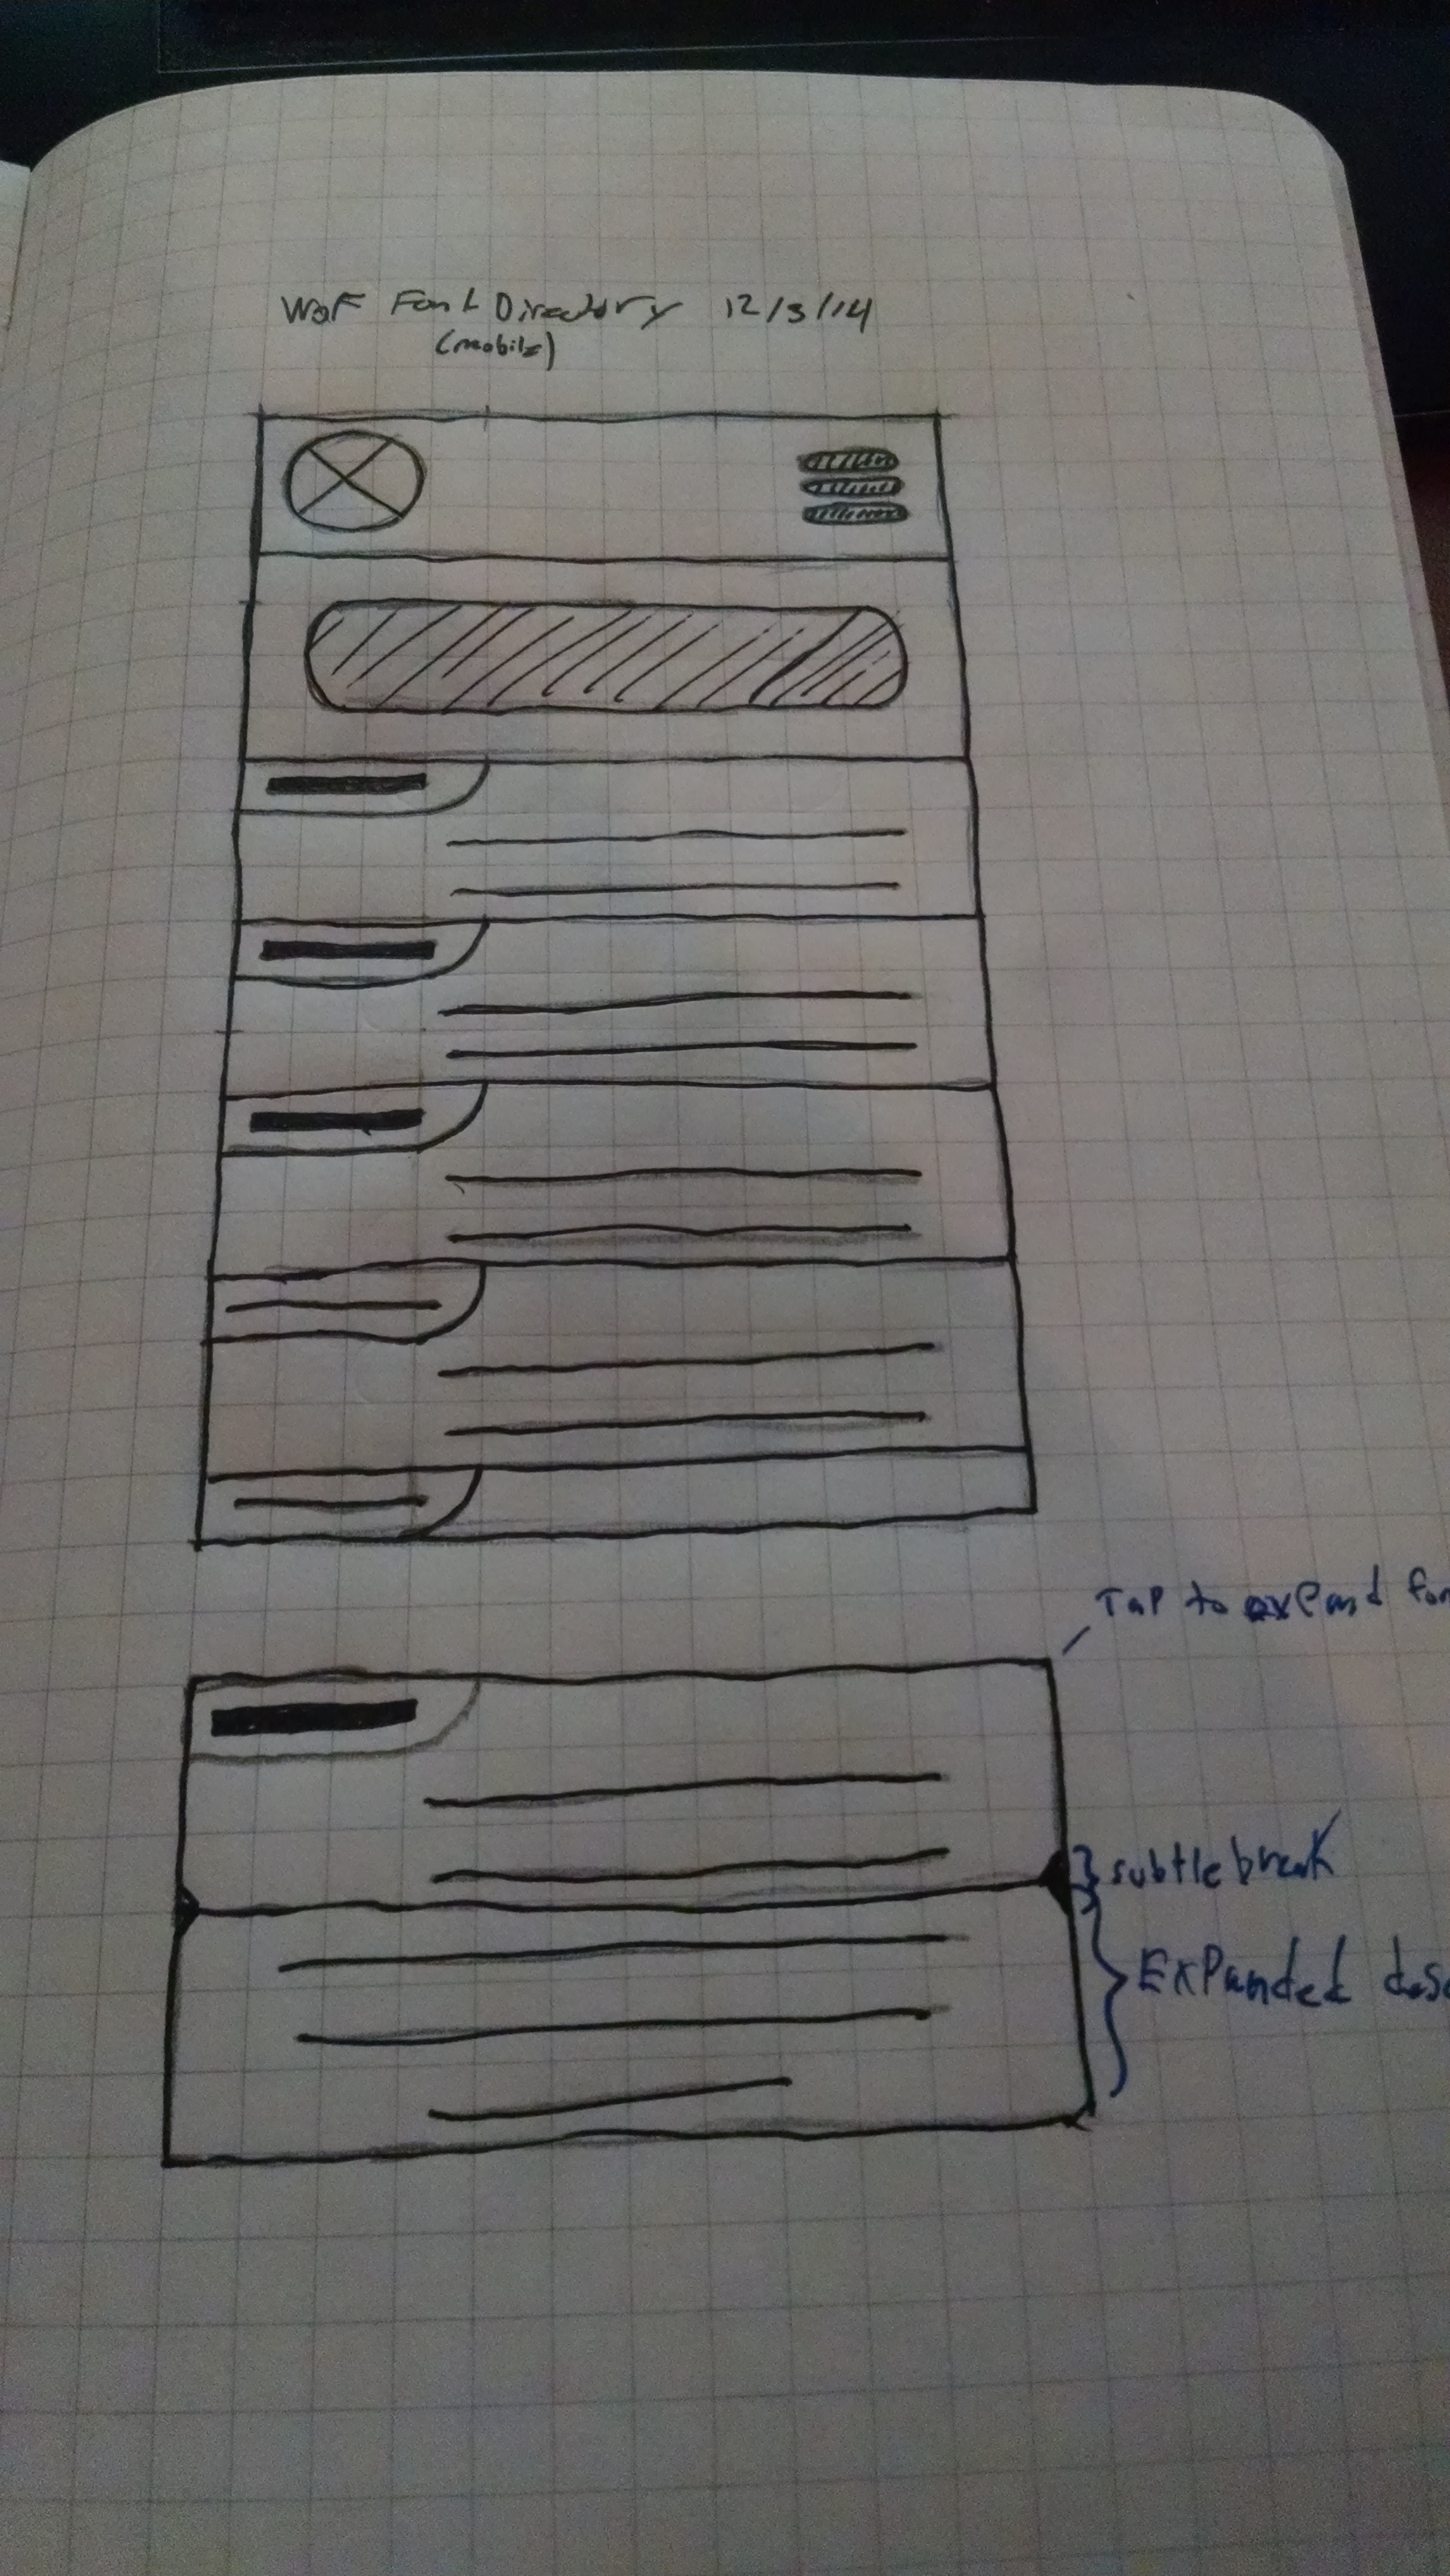 WoF Font Directory 12/3/14
(mobile)
Tap to expand for
subtle break
Expanded desc